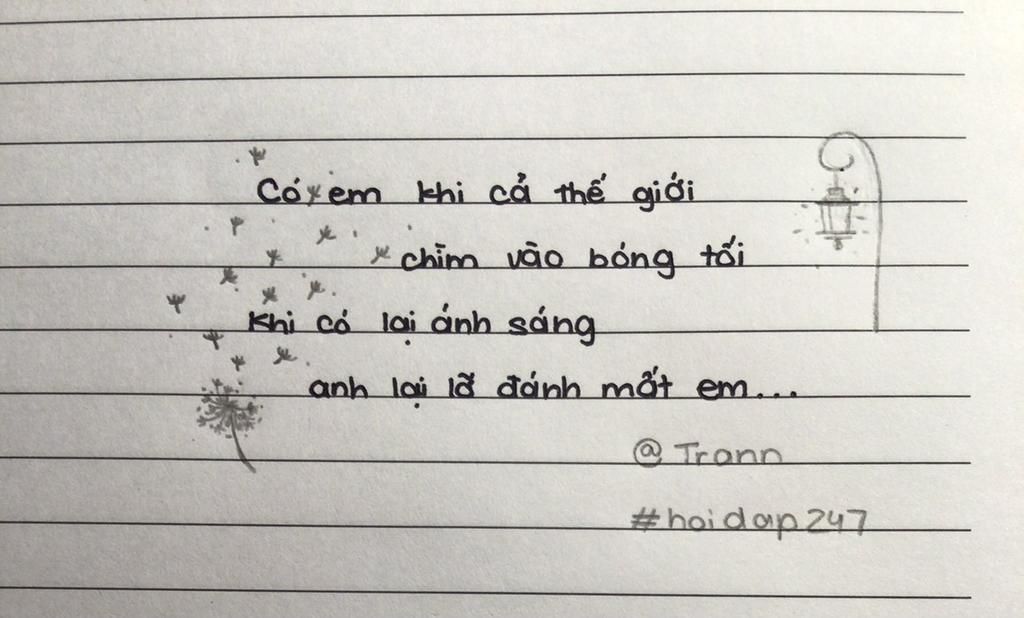 Có em khi cả thế giới
chìm vào bóng tối
Khi có lại ánh sáng
anh lại lỡ đánh mất em...
@ Trann
#hoidap247